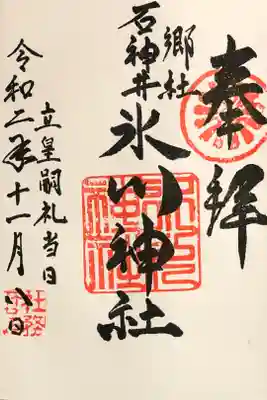 奉拝
郷社
石神井
氷川神社
立皇嗣礼当日
令和二年十一月八日